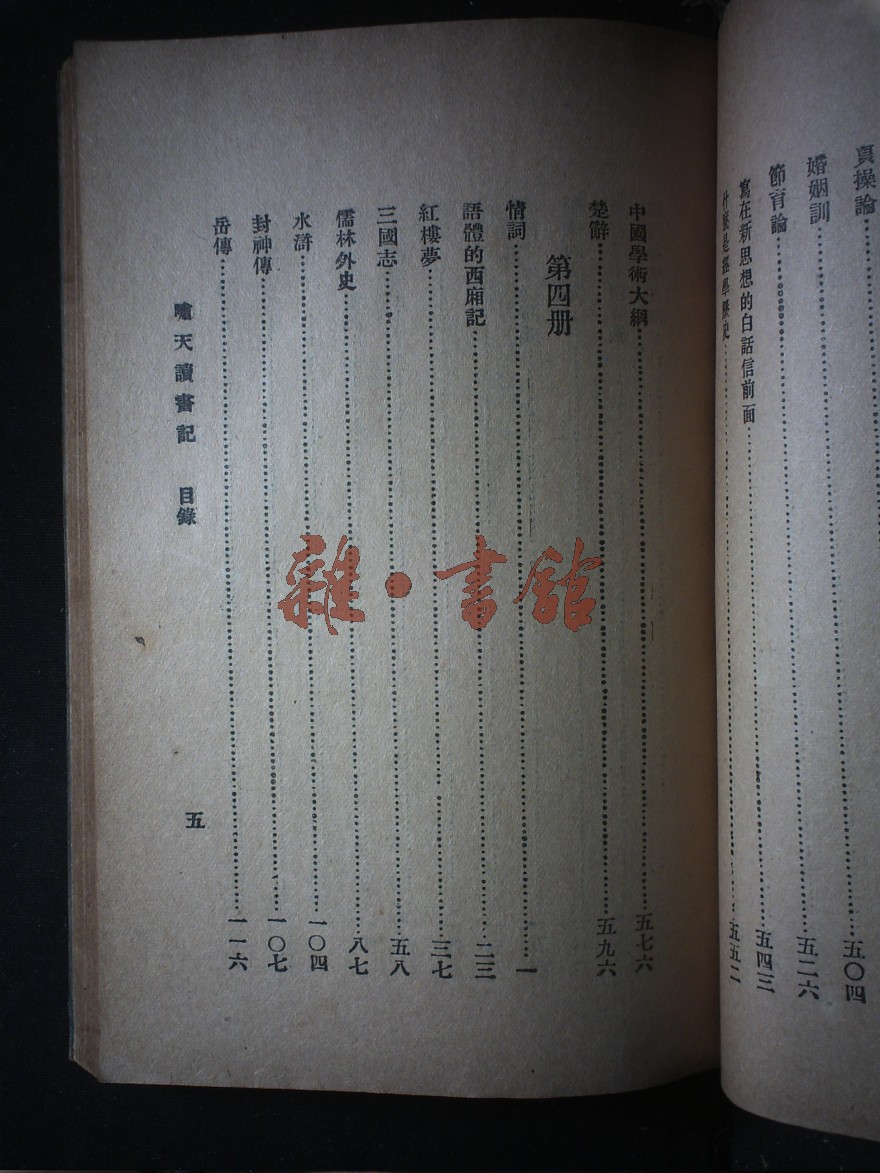 貞操論……五〇四
婚姻訓……五二六
節育論……五四三
寫在新思想的白話信前面……五五二
什麼是經學歷史
中國學術大綱……五七六
楚辭……五九六
第四册
情詞……一
語體的西廂記……二三
紅樓夢……三七
三國志……五八
儒林外史……八七
水滸……一〇四
封神傳……一〇七
岳傳……一一六
嘯天讀書記 目錄 五
雜·書館